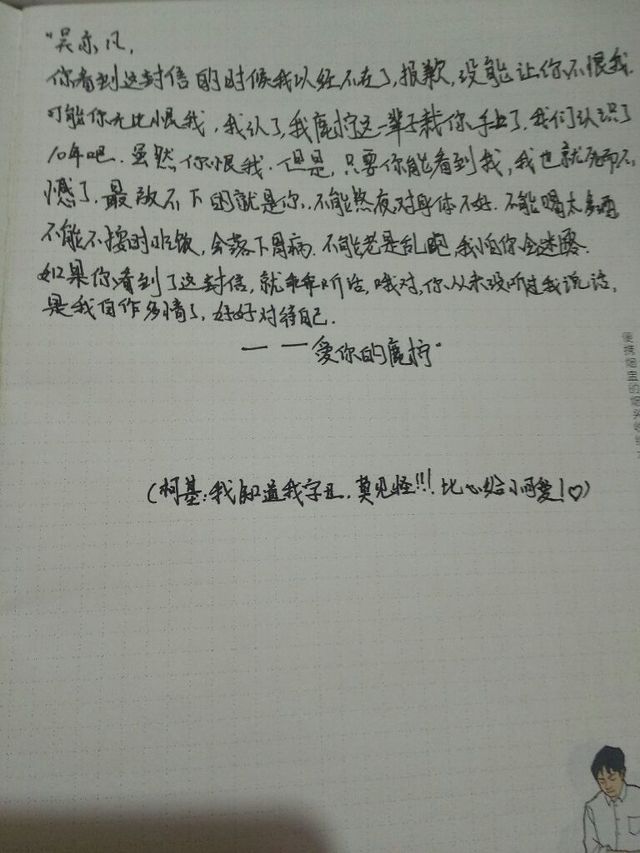 "吴亦凡,
你看到这封信的时候我以经不在了,报歉,没能让你不恨我.
可能你无比恨我,我认了,我鹿拧这一辈子栽你手上了.我们认识了
10年吧.虽然你恨我.但是,只要你能看到我,我也就死而不
憾了.最放不下的就是你.不能熬夜,对身体不好.不能喝太多酒
不能不按时吃饭,会落下胃病.不能老是乱跑,我怕你会迷路.
如果你看到了这封信,就乖乖听话,哦对,你从来没听过我说话,
是我自作多情了,好好对待自己.
——爱你的鹿拧"
(柯基:我知道我字丑.莫见怪!!!比心给小可爱!♡)
便携烟盒的烟头收